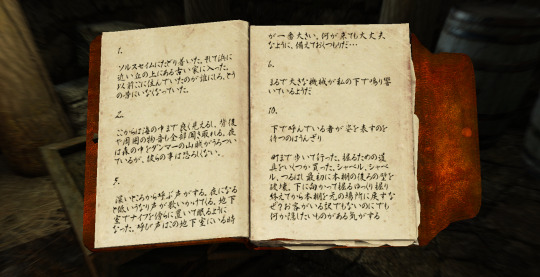 1.
ソルスセイムにたどり着いた。そして浜に
近い丘の上にある古い家に入った。
以前ここに住んでいたのが誰にしろ、とう
の昔にいなくなっていた。
2.
ここからは海の中まで良く見えるし、背後
や周囲の物音も全部聞き取れる。夜
は森の中をダンマーの山賊がうろつい
ているが、彼らの事は恐ろしくない。
3.
深いどこから呼ぶ声がする。夜になる
と低いうなり声が歌いかけてくる。地下
室でナイフを傍らに置いて眠るように
なった。呼び声はこの地下室にいる時
が一番大きい。何が来ても大丈夫
なように、備えておくつもりだ…
まるで大きな機械が私の下で鳴り響
いているようだ
10.
下で呼んでいる者が姿を表すのを
待つのはうんざり
町まで歩いて行った。掘るための道
具をいくつか買った。シャベル、シャベ
ル、つるはし 最初に本棚の後ろの壁を
破壊。下に向かって掘るゆっくり掘り
終えてから本棚を元の場所に戻すな
ぜ?お客がいる訳でもないのにでも
何か隠したいものがある気がする